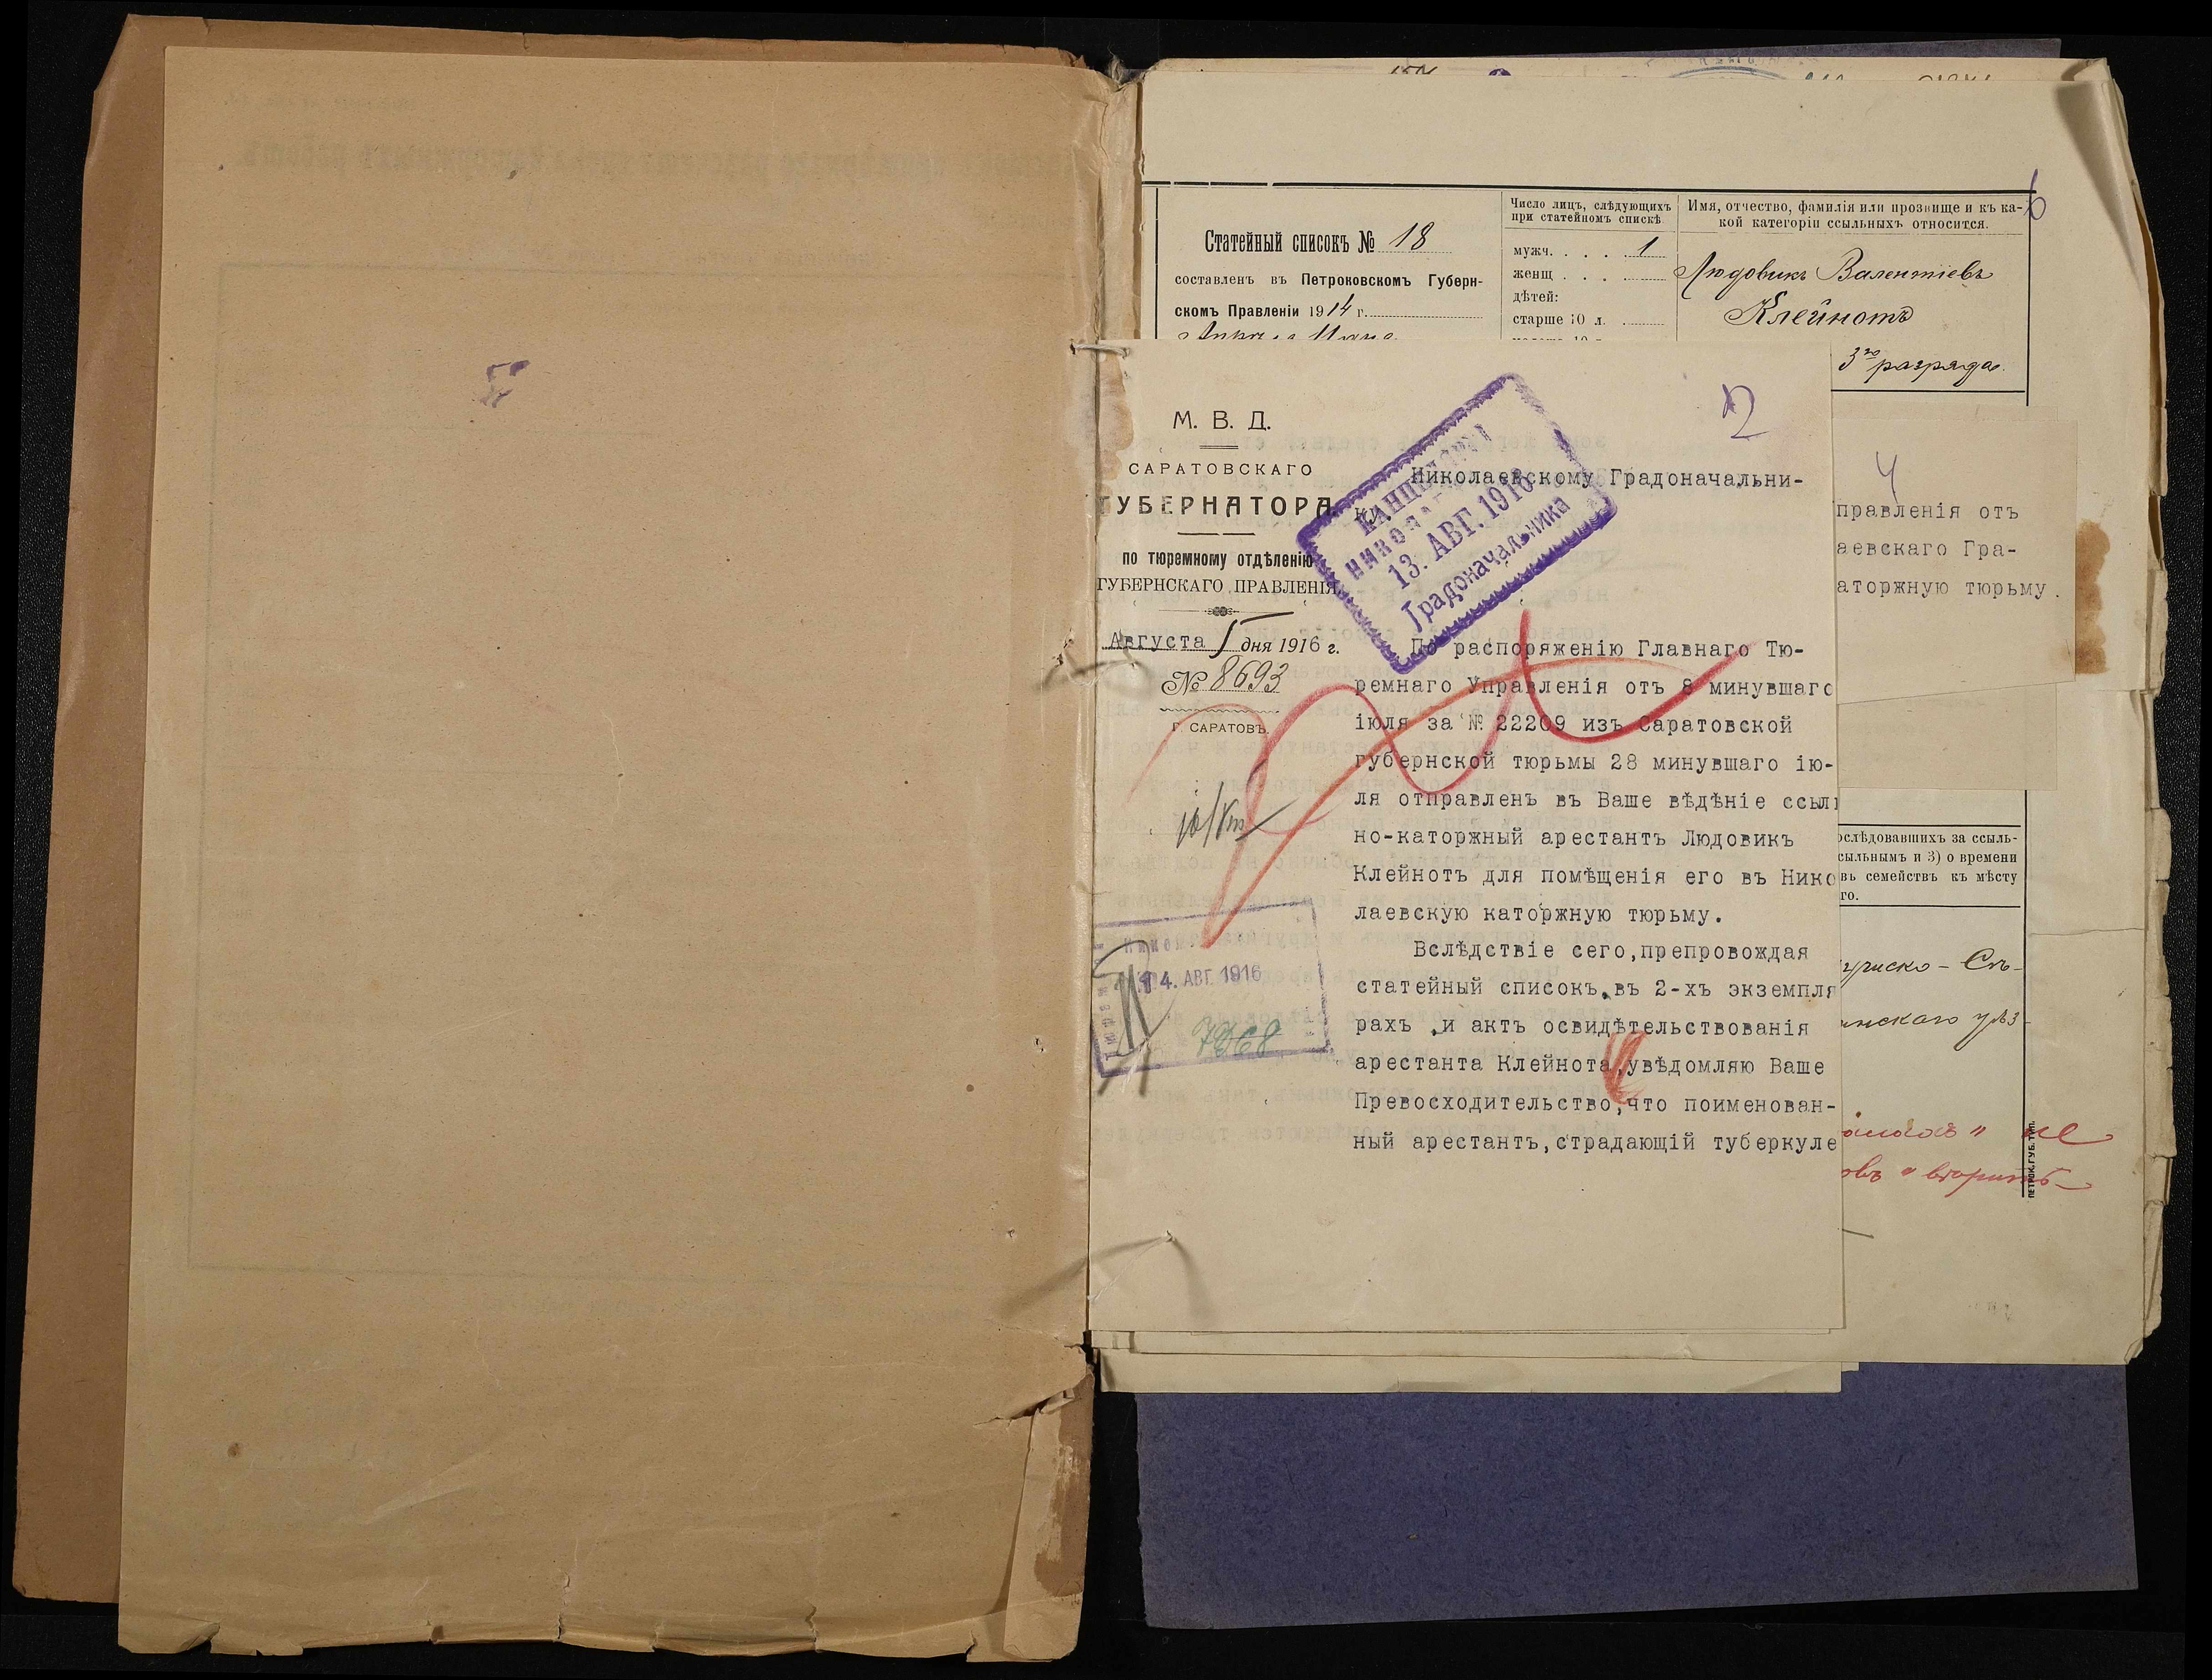 Статейный списокъ № 18
составленъ въ Петроковскомъ Губерн-
скомъ Правленіи 1914 г.
Число лицъ, слѣдующихъ
при статейномъ спискѣ
мужч. . . . . 1
женщ . . . .
дѣтей:
старше 10 л.
Имя, отчество, фамилія или прозвище и къ ка-
кой категоріи ссыльныхъ относится.
6
Людовикъ Валентіевъ
Клейнотъ
3го разряда.
М. В. Д.
САРАТОВСКАГО
ГУБЕРНАТОРА
по тюремному отдѣленію
ГУБЕРНСКАГО ПРАВЛЕНІЯ.
Августа 5 дня 1916 г.
№ 8693
Г. САРАТОВЪ.
14. АВГ 1916
7968
КАНЦЕЛЯРІЯ
НИКОЛАЕВСКАГО
13. АВГ. 1916
Градоначальника
2
Николаевскому Градоначальни-
ку.
По распоряженію Главнаго Тю-
ремнаго Управленія отъ 8 минувшаго
іюля за № 22209 изъ Саратовской
губернской тюрьмы 28 минувшаго ію-
ля отправленъ въ Ваше вѣдѣніе ссыль
но-каторжный арестантъ Людовикъ
Клейнотъ для помѣщенія его въ Нико
лаевскую каторжную тюрьму.
Вслѣдствіе сего,препровождая
статейный списокъ,въ 2-хъ экземпля
рахъ ,и актъ освидѣтельствованія
арестанта Клейнота,увѣдомляю Ваше
Превосходительство,что поименован-
ный арестантъ,страдающій туберкуле
4
правленія отъ
аевскаго Гра-
аторжную тюрьму.
ослѣдовавшихъ за ссыль-
сыльнымъ и 3) о времени
въ семействъ къ мѣсту
го.
нскаго уѣз
ПЕТРОК.ГУБ.ТИП.